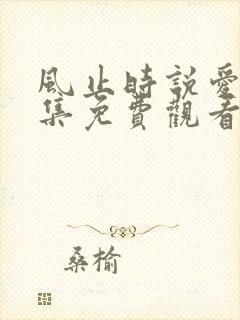 風止時說愛
集免費觀看
桑榆